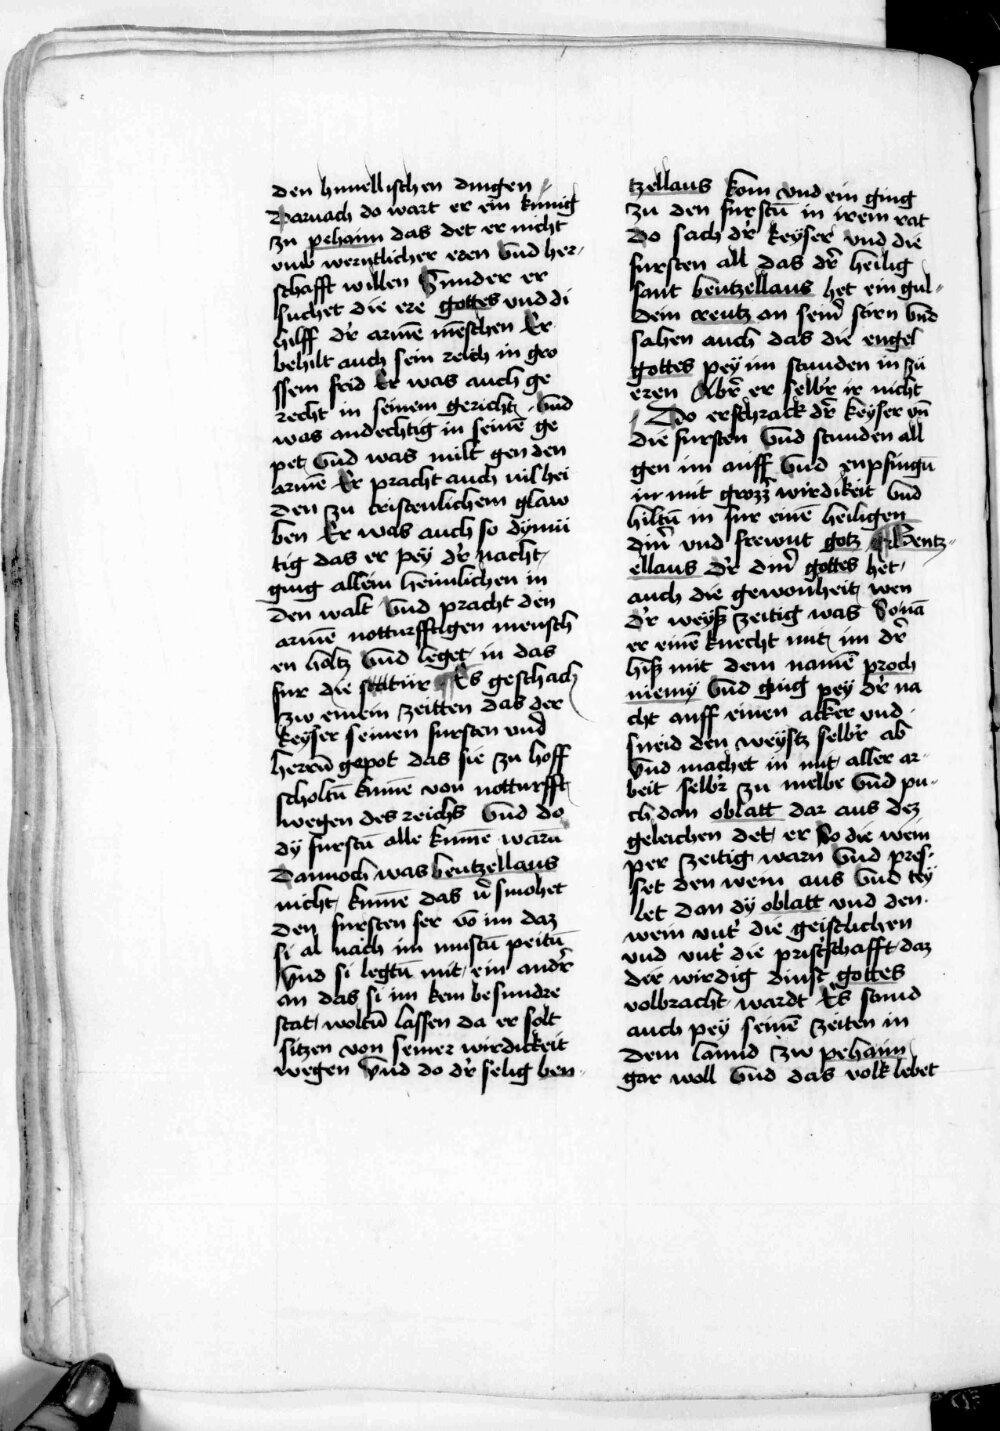 den himellischen dingen
Darnach do wart er ein kunig
zu pehaim das det er nicht
vmb werntlicher eren vnd her-
schafft willen Sunder er
suchet die ere gottes vnd di
hilff dr armē mēschen Er
behilt auch sein reich in gro
ssem frid Er was auch ge
recht in seinem gericht vnd
was andechtig in seinē ge
pet vnd was milt gen den
armē Er pracht auch vil hei
den zu cristenlichem glaw
ben Er was auch so dÿmü
tig das er peÿ dr nacht
ging allein heimlichen in
den walt vnd pracht den
armē notturfftigen mensch
en holtz vnd leget in das
fur die tür Es geschach
zw einem zeitten das der
keÿser seinen fursten vnd
herrn̄ gepot das sie zu hoff
scholtn̄ kumē von notturfft
wegen des reichs vnd do
dÿ furstn̄ alle kumē warn̄
Dannoch was bentzellaus
nicht kumē das v̄smohet
den fursten ser vō im daz
si al nach im mustn̄ peitn̄
vnd si legtn̄ mit ein andr̄
an das si im kein besundre
stat woltn̄ lassen da er solt
sitzen von seiner wirdickeit
wegen vnd do dr selig ben-
tzellaus kom vnd ein ging
zu den furstn̄ in irem rat
do sach dr̄ keÿser vnd die
fursten all das dr̄ heilig
sant bentzellaus het ein gul-
dein creutz an seinr̄ stirn vnd
sahen auch das die engel
gottes peÿ im stunden in zü
eren Abr̄ er selbr̄ ir nicht
Do erschrack dr̄ keÿser vn̄
die fursten vnd stunden all
gen im auff vnd enpfingn̄
in mit grozzr̄ wirdikeit vnd
hiltn̄ in fur einē heiligen
dinr̄ vnd frewnt gotz Bentz-
ellaus dr̄ dinr̄ gottes het
auch die gewonheit wen
dr̄ weÿß zeitig was So nā
er einē knecht mit im dr̄
hiß mit dem namē proch
niemÿ vnd ging peÿ dr̄ na
cht auff einen acker vnd
sneid den weÿtz selbr̄ ab
vnd machet in mit aller ar-
beit selbr̄ zu melbe vnd pu-
ch dan oblatt dar aus dez
geleichen det er So die wein
per zeitig warn vnd pres-
set den wein aus vnd teÿ
let dan dÿ oblatt vnd den
wein vntr̄ die geistlichen
vnd vntr̄ die pristr̄schafft daz
der wirdig dinst gottes
volbracht wardt Es stund
auch peÿ seinē zeiten in
dem lannd zw pehaim
gar woll vnd das volk lebet